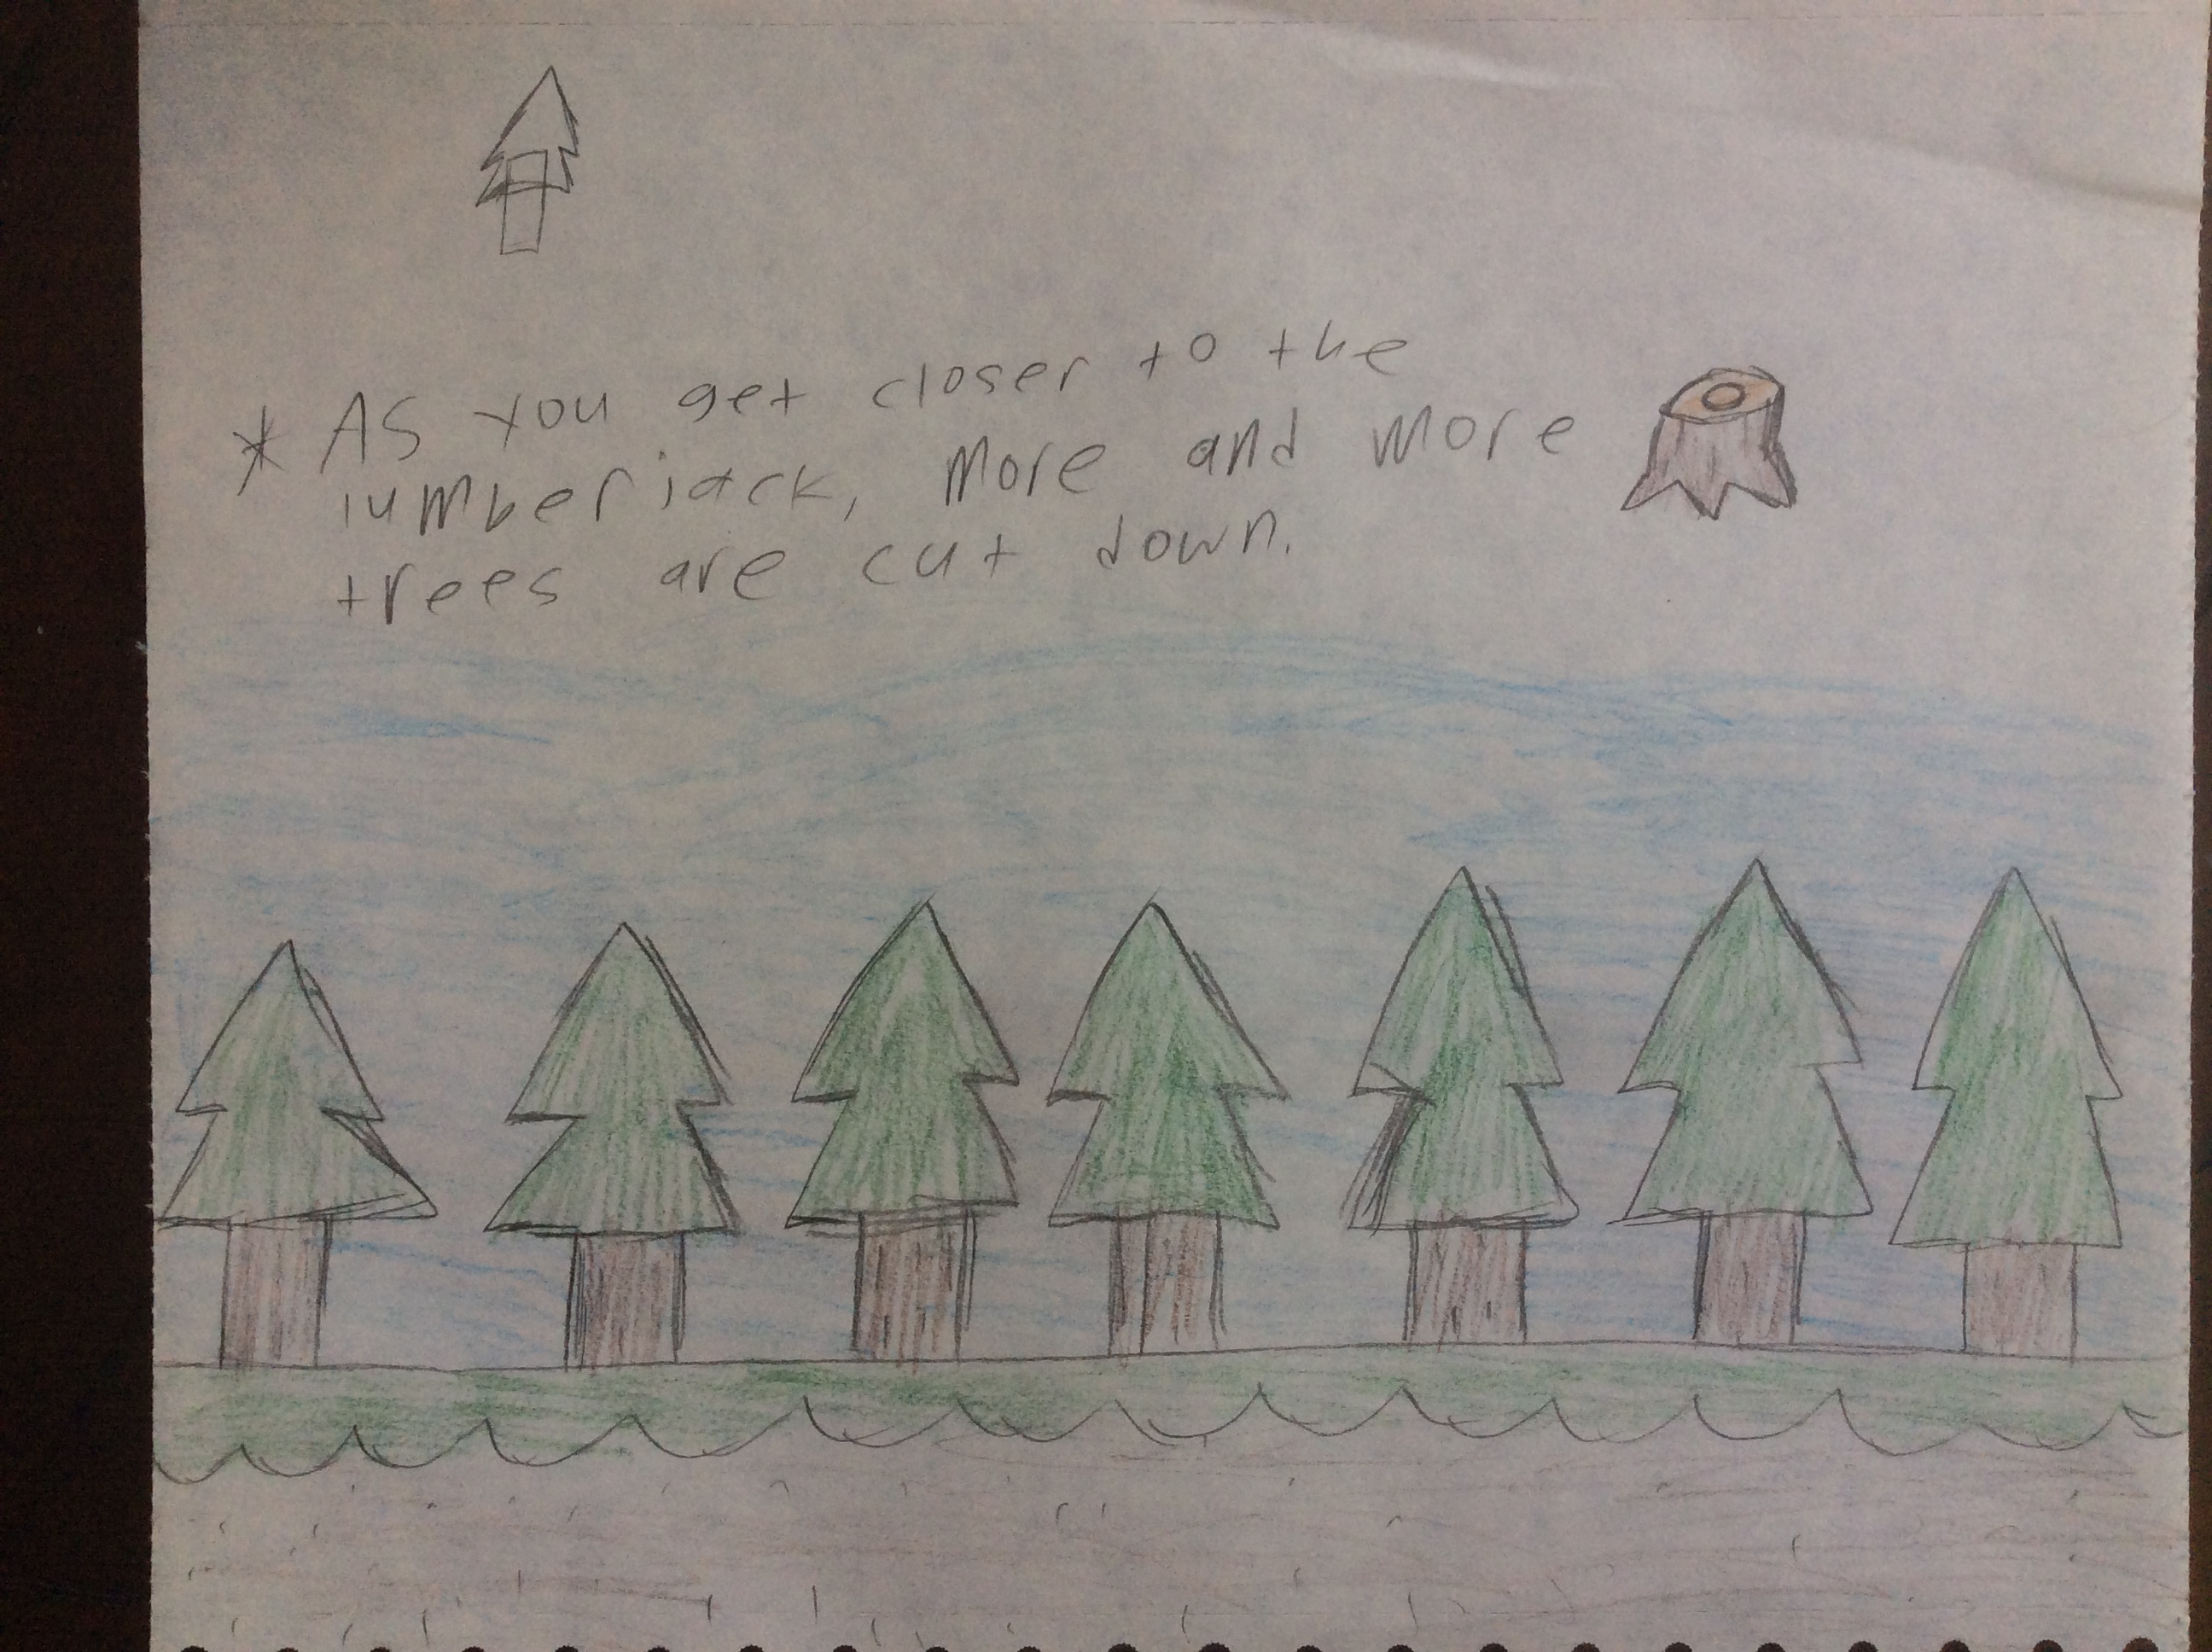 * As you get closer to the
lumberjack, more and more
trees are cut down.